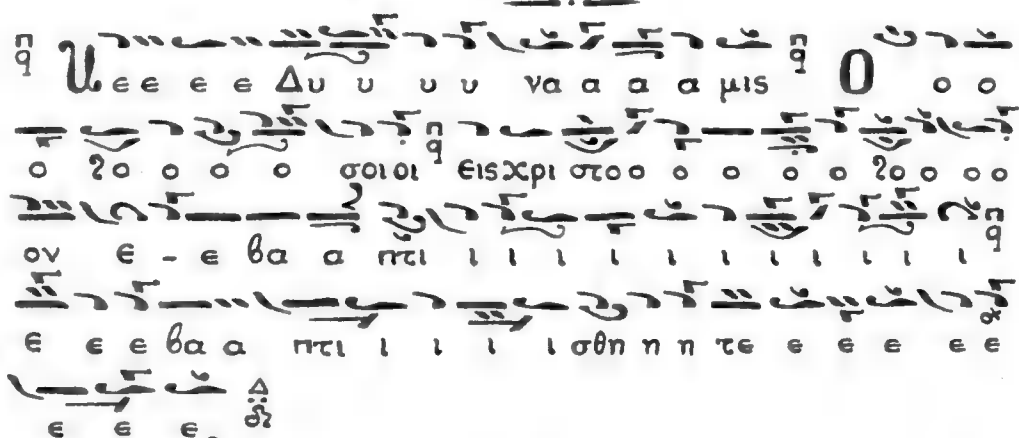 ε ε ε ε Δυ υ υ υ να α α α μις Ο ο ο
ο ο ο ο ο σοι οι εις χρι στο ο ο ο ο ο ο ο ο ο
ον ε - ε βα α πτι ι ι ι ι ι ι ι ι ι ι
ε ε ε βα α πτι ι ι ι ι σθη η η τε ε ε ε ε ε
ε ε ε Δ